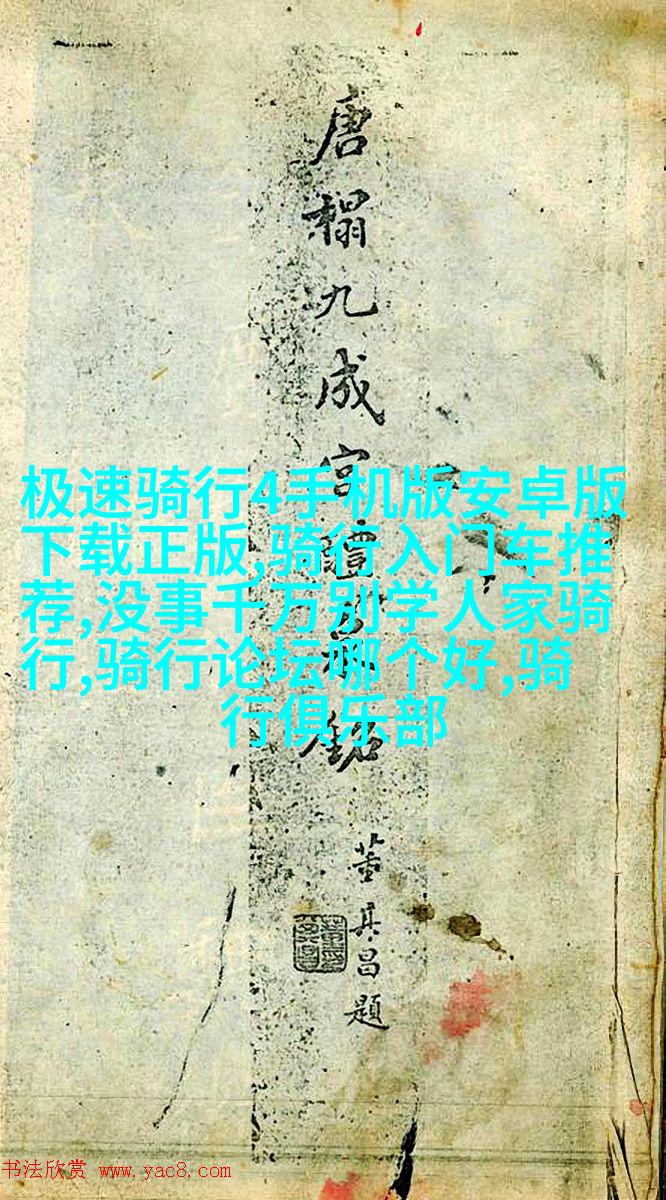 唐榻九成宫醴泉铭
董其昌题
极速骑行4手机版安卓版
下载正版,骑行入门车推
荐,没事千万别学人家骑
行,骑行论坛哪个好,骑
行俱乐部
书法欣赏 www.yac8.com